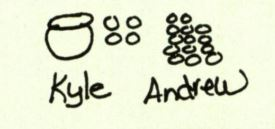 Kyle Andrew